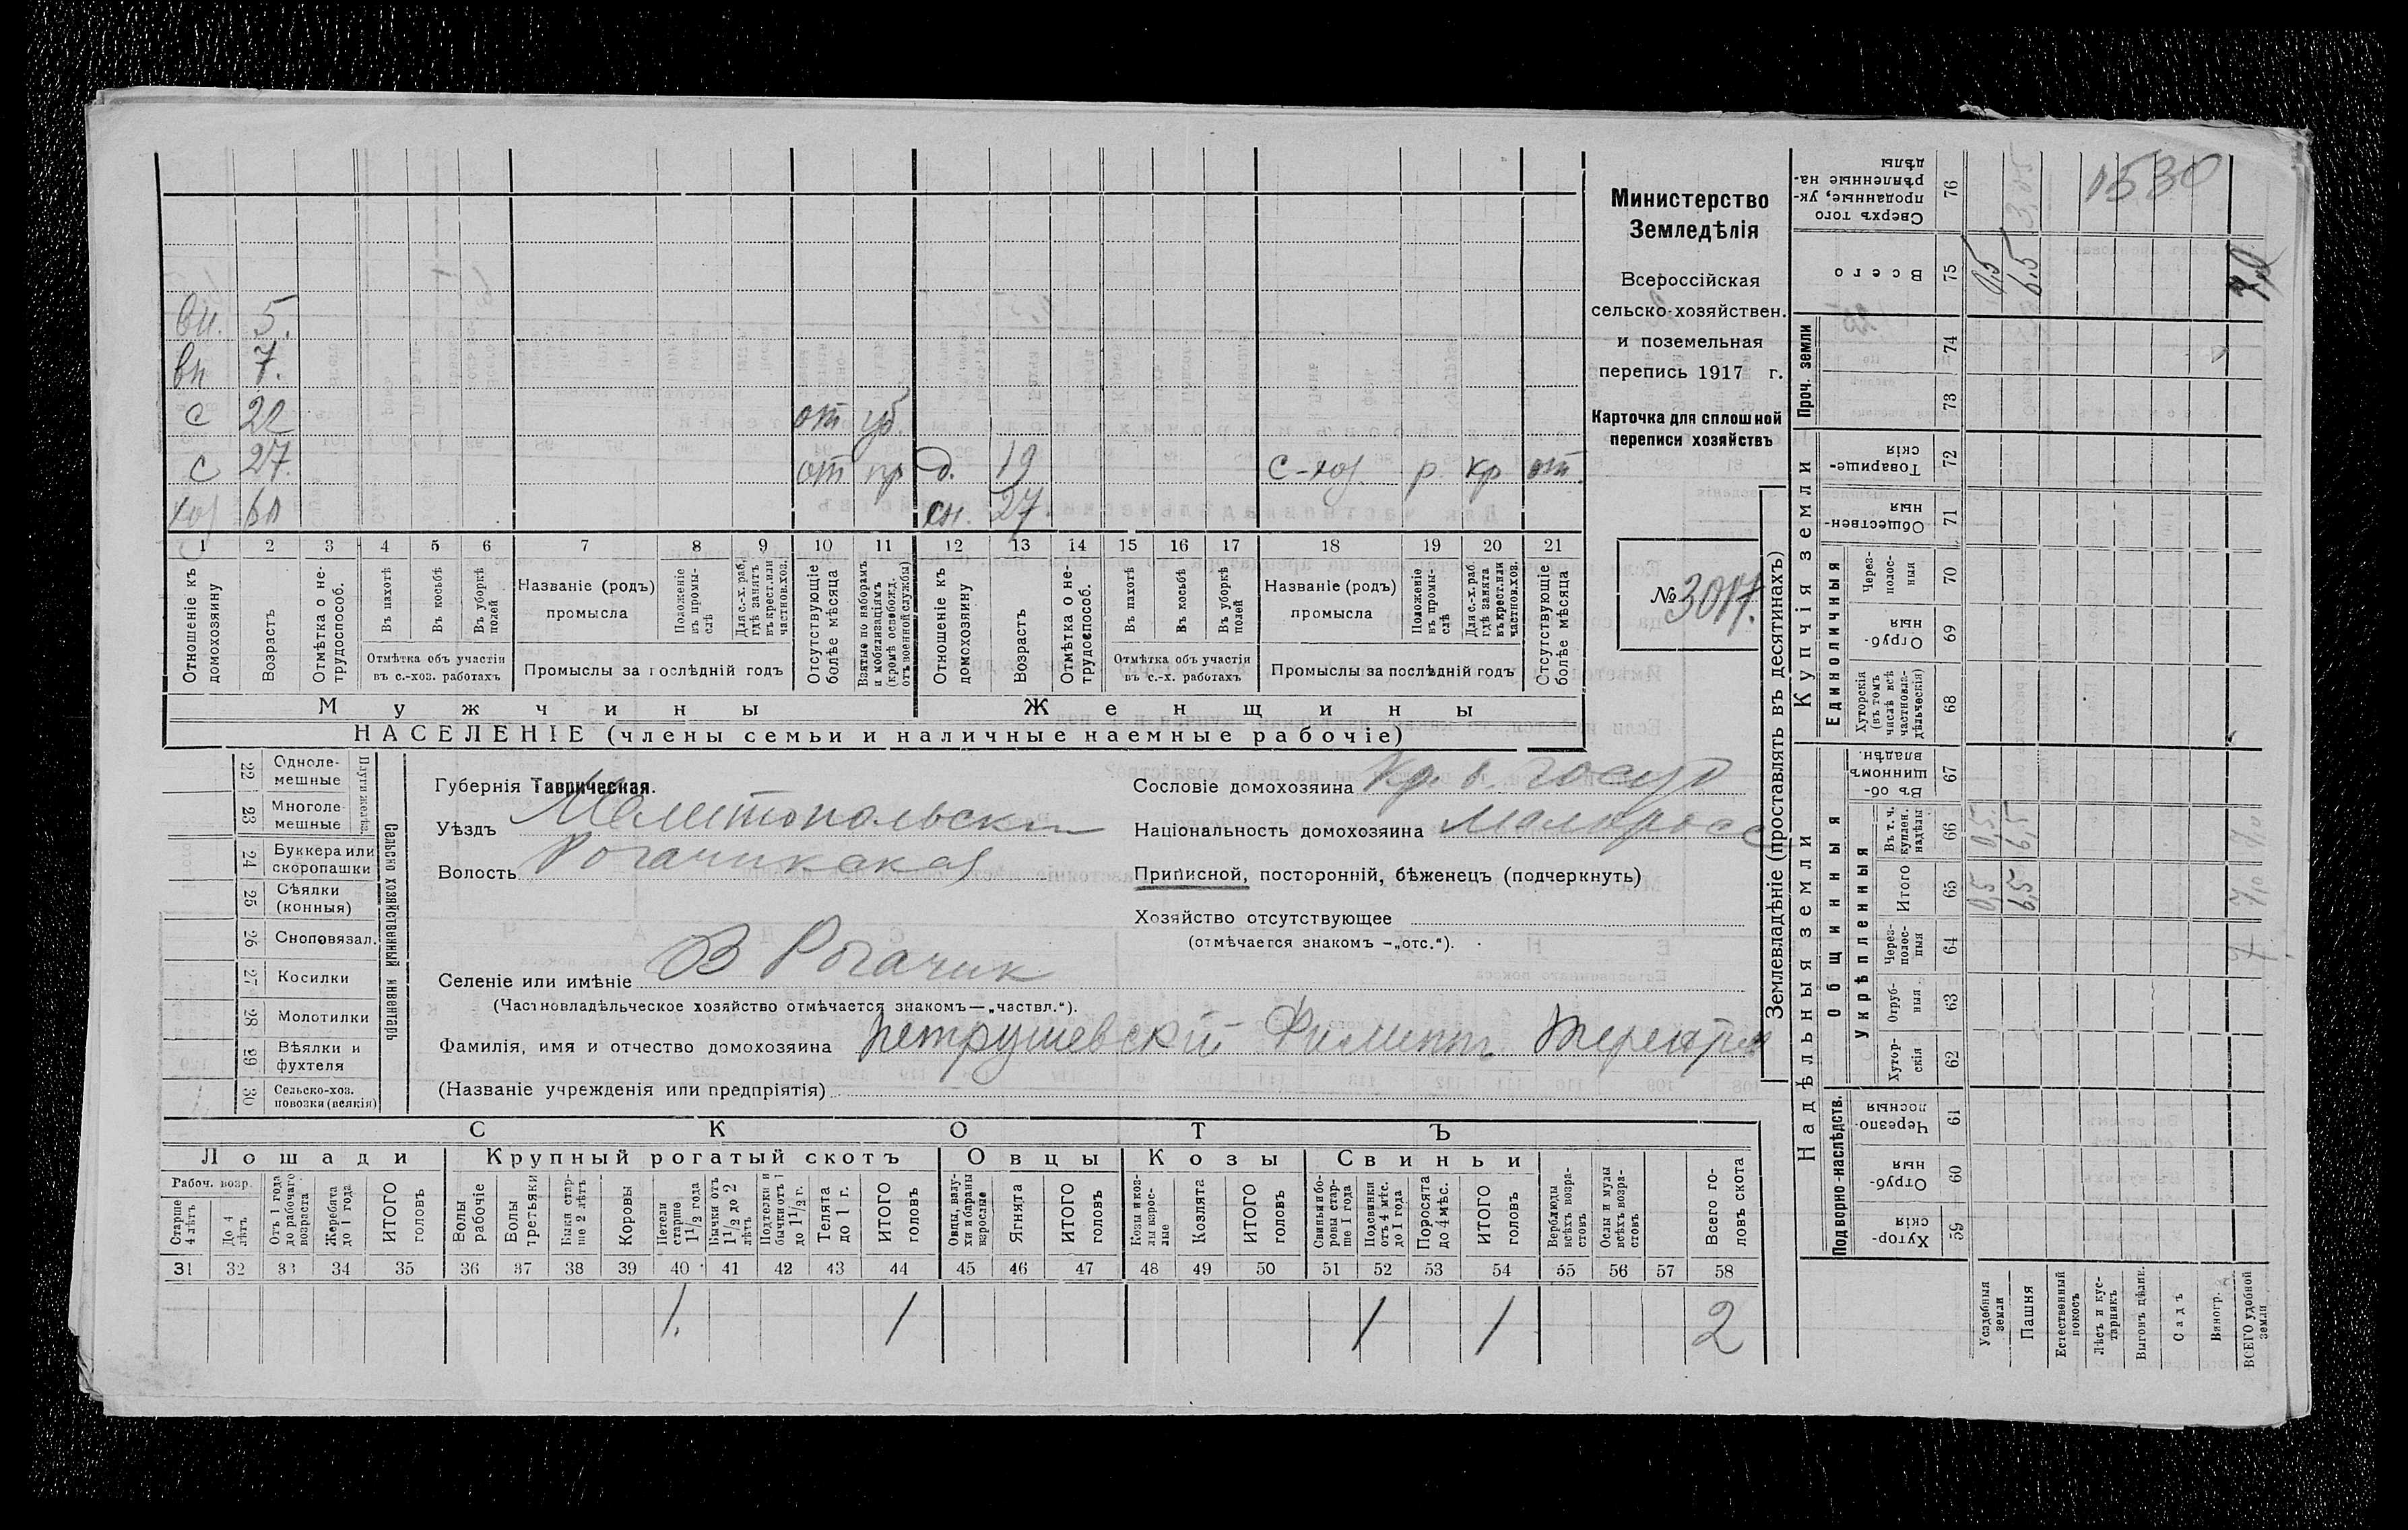 вн. 5.
вн 7.
с 22 от уб.
с 27. от пр д. 19 с-хоз. р. кр от.
хоз 60 сн. 27.
1 2 3 4 5 6 7 8 9 10 11 12 13 14 15 16 17 18 19 20 21
Отношеніе къ домохозяину
Возрастъ
Отмѣтка о не-трудоспособ.
Въ пахотѣ
Въ косьбѣ
Въ уборкѣ полей
Отмѣтка объ участіи въ с.-хоз. работахъ
Названіе (родъ) промысла
Положеніе въ промы-слѣ
Для с.-х. раб. гдѣ занятъ въ крест. или частнов. хоз.
Промыслы за послѣдній годъ
Отсутствующіе болѣе мѣсяца
Взятые по наборамъ и мобилизаціямъ (кромѣ освобожд. отъ военной службы)
Отношеніе къ домохозяину
Возрастъ
Отмѣтка о не-трудоспособ.
Въ пахотѣ
Въ косьбѣ
Въ уборкѣ полей
Отмѣтка объ участіи въ с.-х. работахъ
Названіе (родъ) промысла
Положеніе въ промы-слѣ
Для с.-х. раб. гдѣ занята въ крест. или частнов. хоз.
Промыслы за послѣдній годъ
Отсутствующіе болѣе мѣсяца
Мужчины Женщины
НАСЕЛЕНІЕ (члены семьи и наличные наемные рабочіе)
Министерство
Земледѣлія
Всероссійская
сельско-хозяйствен.
и поземельная
перепись 1917 г.
Карточка для сплошной
переписи хозяйствъ
№ 3017.
22 Одноле-мешные
23 Многоле-мешные
Плуги желѣз.
24 Буккера или скоропашки
25 Сѣялки (конныя)
26 Сноповязал.
27 Косилки
28 Молотилки
29 Вѣялки и фухтеля
30 Сельско-хоз. повозки (всякія)
Сельско хозяйственный инвентарь
Губернія Таврическая.
Уѣздъ Мелитопольски
Волость Рогачикская
Селеніе или имѣніе В Рогачик
(Частновладѣльческое хозяйство отмѣчается знакомъ—„частвл.“).
Фамилія, имя и отчество домохозяина Петрушевскій Филиппъ
(Названіе учрежденія или предпріятія)
Сословіе домохозяина Кр. б. госуд
Національность домохозяина Малоросс
Приписной, посторонній, бѣженец (подчеркнуть)
Хозяйство отсутствующее
(отмѣчается знакомъ —„отс.“).
СКОТЪ
Лошади Крупный рогатый скотъ Овцы Козы Свиньи
Рабоч. возр.
Старше 4 лѣтъ
До 4 лѣтъ
Отъ 1 года до рабочаго возраста
Жеребята до 1 года
ИТОГО головъ
Волы рабочіе
Волы третьяки
Быки стар-ше 2 лѣтъ
Коровы
Нетели старше 1 1/2 года
Бычки отъ 1 1/2 до 2 лѣтъ
Подтелки и бычки отъ 1 до 1 1/2 г.
Телята до 1 г.
ИТОГО головъ
Овцы, валу-хи и бараны взрослые
Ягнята
ИТОГО головъ
Козы и коз-лы взрос-лые
Козлята
ИТОГО головъ
Свиньи и бо-ровы стар-ше 1 года
Подсвинки отъ 4 мѣс. до 1 года
Поросята до 4 мѣс.
ИТОГО головъ
Верблюды всѣхъ возра-стовъ
Ослы и мулы всѣхъ возра-стовъ
Всего го-ловъ скота
31 32 33 34 35 36 37 38 39 40 41 42 43 44 45 46 47 48 49 50 51 52 53 54 55 56 57 58
1. 1 1 1 2
Землевладѣніе (проставлять въ десятинахъ)
Сверхъ того проданные, ук-рѣпленные на-дѣлы 76 3,05 0530
Всего 75 0,5 6,5 7,0
Проч. земли
74
73
Купчія земли
Товарище-скія 72
Обществен-ныя 71
Единоличныя
Через-полос-ныя 70
Отруб-ныя 69
Хуторскія (въ томъ числѣ всѣ частновла-дѣльческія) 68
Надѣльныя земли
Общинныя
Въ об-щинномъ владѣн. 67
Укрѣпленныя
Въ т. ч. куплен. надѣлы 66 0,5 6,5 7,0
Итого 65 0,5 6,5 7,0
Через-полос-ныя 64 7.
Отруб-ныя 63
Хутор-скія 62
Подворно-наслѣдств.
Черезпо-лосныя 61
Отруб-ныя 60
Хутор-скія 59
Усадебныя земли
Пашня
Естественный покосъ
Лѣсъ и кус-тарникъ
Выгонъ цѣлин.
Садъ
Виногр.
ВСЕГО удобной земли